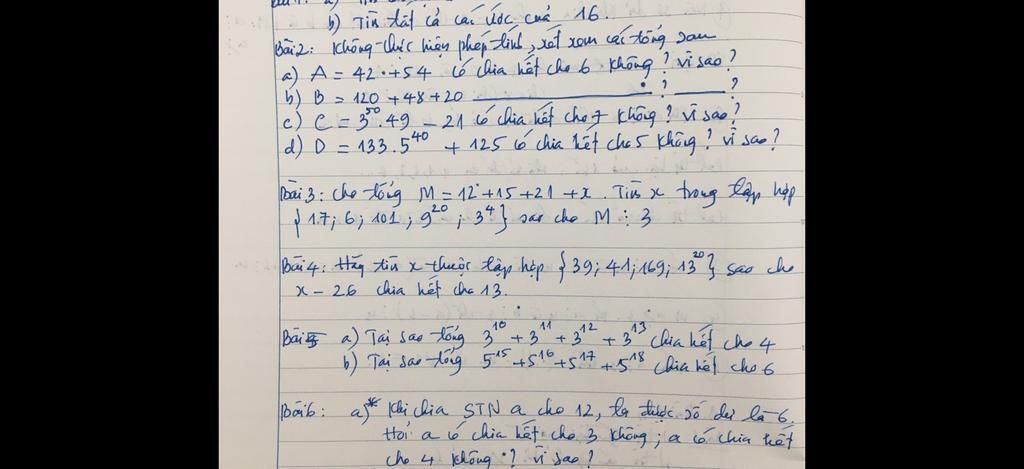 b) Tìm tất cả các ước của 16.
Bài 2: Không thực hiện phép tính, xét xem các tổng sau
a) A = 42 + 54 có chia hết cho 6 không? vì sao?
b) B = 120 + 48 + 20 ____________ ? ______ ?
c) C = 3⁵⁰.49 – 21 có chia hết cho 7 không? vì sao?
d) D = 133.5⁴⁰ + 125 có chia hết cho 5 không? vì sao?
Bài 3: Cho tổng M = 12 + 15 + 21 + x. Tìm x trong tập hợp
{17; 6; 101; 9²⁰; 3⁴} sao cho M ⋮ 3
Bài 4: Hãy tìm x thuộc tập hợp {39; 41; 169; 13²⁰} sao cho
x – 26 chia hết cho 13.
Bài 5 a) Tại sao tổng 3¹⁰ + 3¹¹ + 3¹² + 3¹³ chia hết cho 4
b) Tại sao tổng 5¹⁵ + 5¹⁶ + 5¹⁷ + 5¹⁸ chia hết cho 6
Bài 6: a)* Khi chia STN a cho 12, ta được số dư là 6.
Hỏi a có chia hết cho 3 không; a có chia hết
cho 4 không? vì sao?